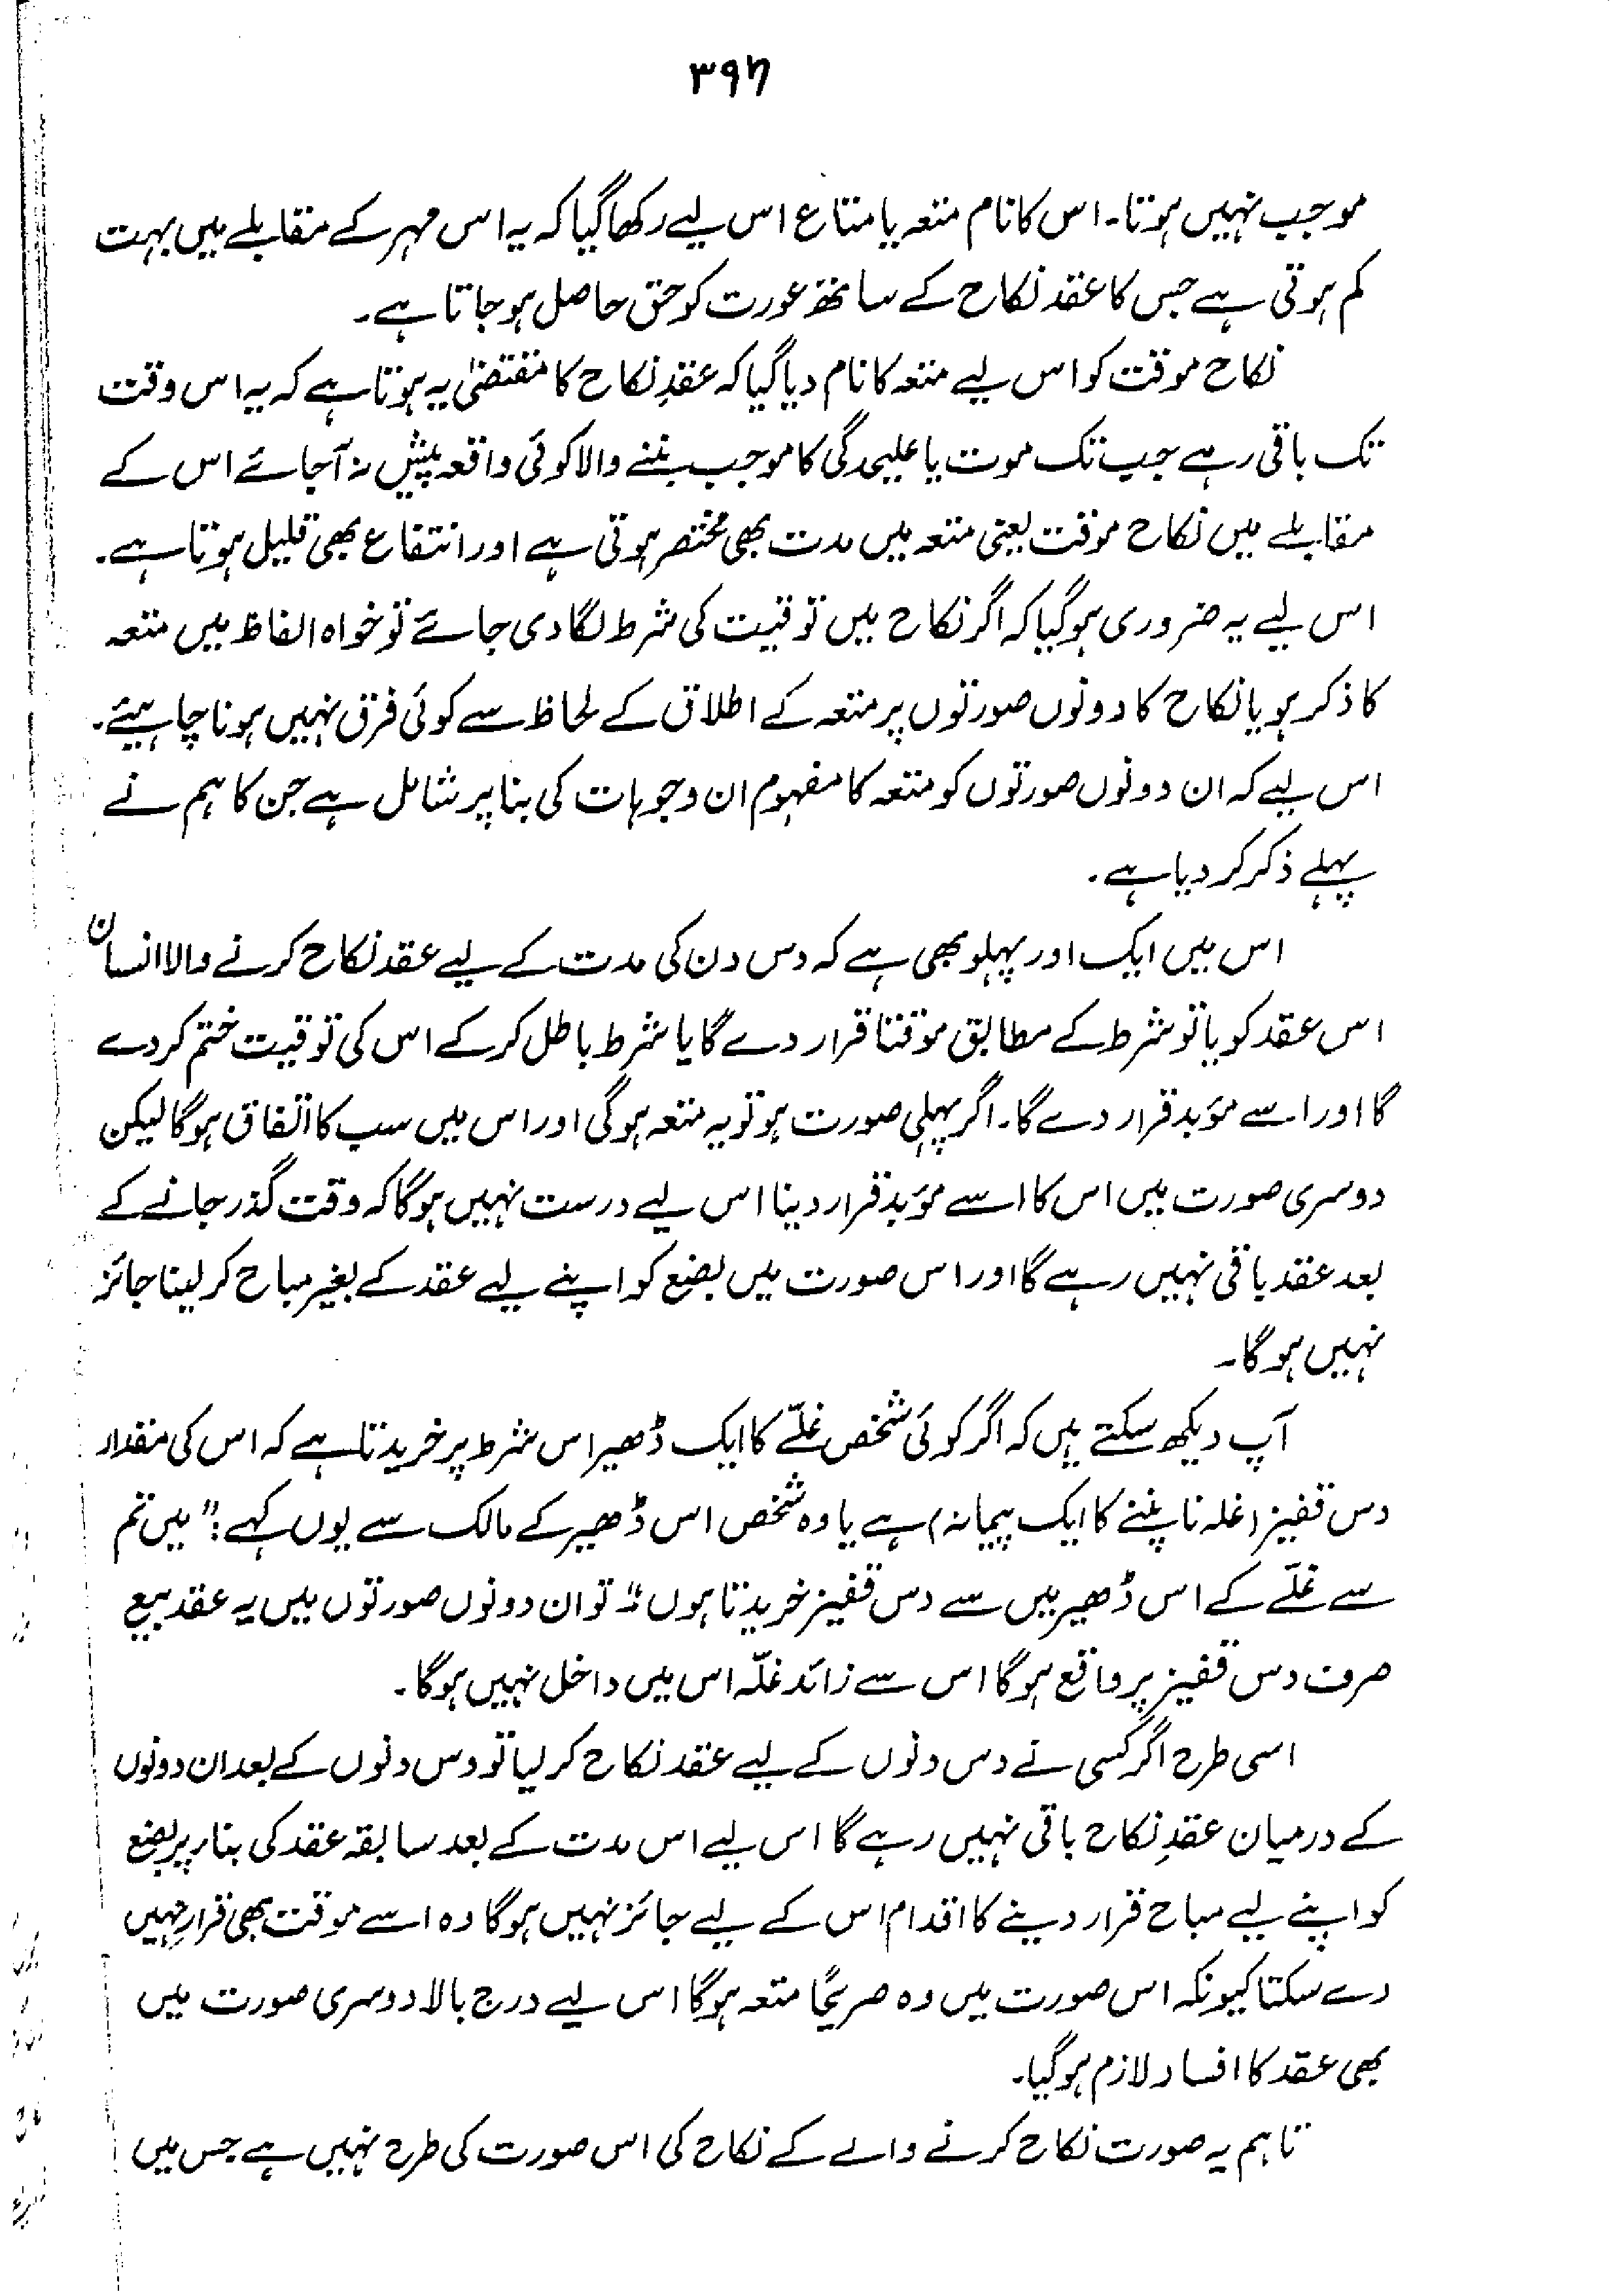 ۳۹۶
موجب نہیں ہوتا۔ اس کا نام متعہ یا متاع اس لیے رکھا گیا کہ یہ اس مہر کے مقابلے میں بہت
کم ہوتی ہے جس کا عقد نکاح کے ساتھ عورت کو حق حاصل ہو جاتا ہے۔
نکاح موقت کو اس لیے متعہ کا نام دیا گیا کہ عقدِ نکاح کا مقتضیٰ یہ ہوتا ہے کہ یہ اس وقت
تک باقی رہے جب تک موت یا علیحدگی کا موجب بننے والا کوئی واقعہ پیش نہ آجائے اس کے
مقابلے میں نکاح موقت یعنی متعہ میں مدت بھی مختصر ہوتی ہے اور انتفاع بھی قلیل ہوتا ہے۔
اس لیے یہ ضروری ہو گیا کہ اگر نکاح میں توقیت کی شرط لگا دی جائے تو خواہ الفاظ میں متعہ
کا ذکر ہو یا نکاح کا دونوں صورتوں پر متعہ کے اطلاق کے لحاظ سے کوئی فرق نہیں ہونا چاہیئے۔
اس لیے کہ ان دونوں صورتوں کو متعہ کا مفہوم ان وجوہات کی بنا پر شامل ہے جن کا ہم نے
پہلے ذکر کر دیا ہے۔
اس میں ایک اور پہلو بھی ہے کہ دس دن کی مدت کے لیے عقد نکاح کرنے والا انسان
اس عقد کو یا تو شرط کے مطابق موقتا قرار دے گا یا شرط باطل کر کے اس کی توقیت ختم کر دے
گا اور اسے مؤبد قرار دے گا۔ اگر پہلی صورت ہو تو یہ متعہ ہوگی اور اس میں سب کا اتفاق ہوگا لیکن
دوسری صورت میں اس کا اسے مؤبد قرار دینا اس لیے درست نہیں ہوگا کہ وقت گذر جانے کے
بعد عقد باقی نہیں رہے گا اور اس صورت میں بضع کو اپنے لیے عقد کے بغیر مباح کر لینا جائز
نہیں ہوگا۔
آپ دیکھ سکتے ہیں کہ اگر کوئی شخص غلّے کا ایک ڈھیر اس شرط پر خریدتا ہے کہ اس کی مقدار
دس قفیز (غلہ ناپنے کا ایک پیمانہ) ہے یا وہ شخص اس ڈھیر کے مالک سے یوں کہے: "میں تم
سے غلّے کے اس ڈھیر میں سے دس قفیز خریدتا ہوں" تو ان دونوں صورتوں میں یہ عقد بیع
صرف دس قفیز پر واقع ہوگا اس سے زائد غلّہ اس میں داخل نہیں ہوگا۔
اسی طرح اگر کسی نے دس دنوں کے لیے عقد نکاح کر لیا تو دس دنوں کے بعد ان دونوں
کے درمیان عقدِ نکاح باقی نہیں رہے گا اس لیے اس مدت کے بعد سابقہ عقد کی بناء پر بضع
کو اپنے لیے مباح قرار دینے کا اقدام اس کے لیے جائز نہیں ہوگا وہ اسے موقت بھی قرار نہیں
دے سکتا کیونکہ اس صورت میں وہ صریحًا متعہ ہوگا اس لیے درج بالا دوسری صورت میں
بھی عقد کا افساد لازم ہوگیا۔
تاہم یہ صورت نکاح کرنے والے کے نکاح کی اس صورت کی طرح نہیں ہے جس میں